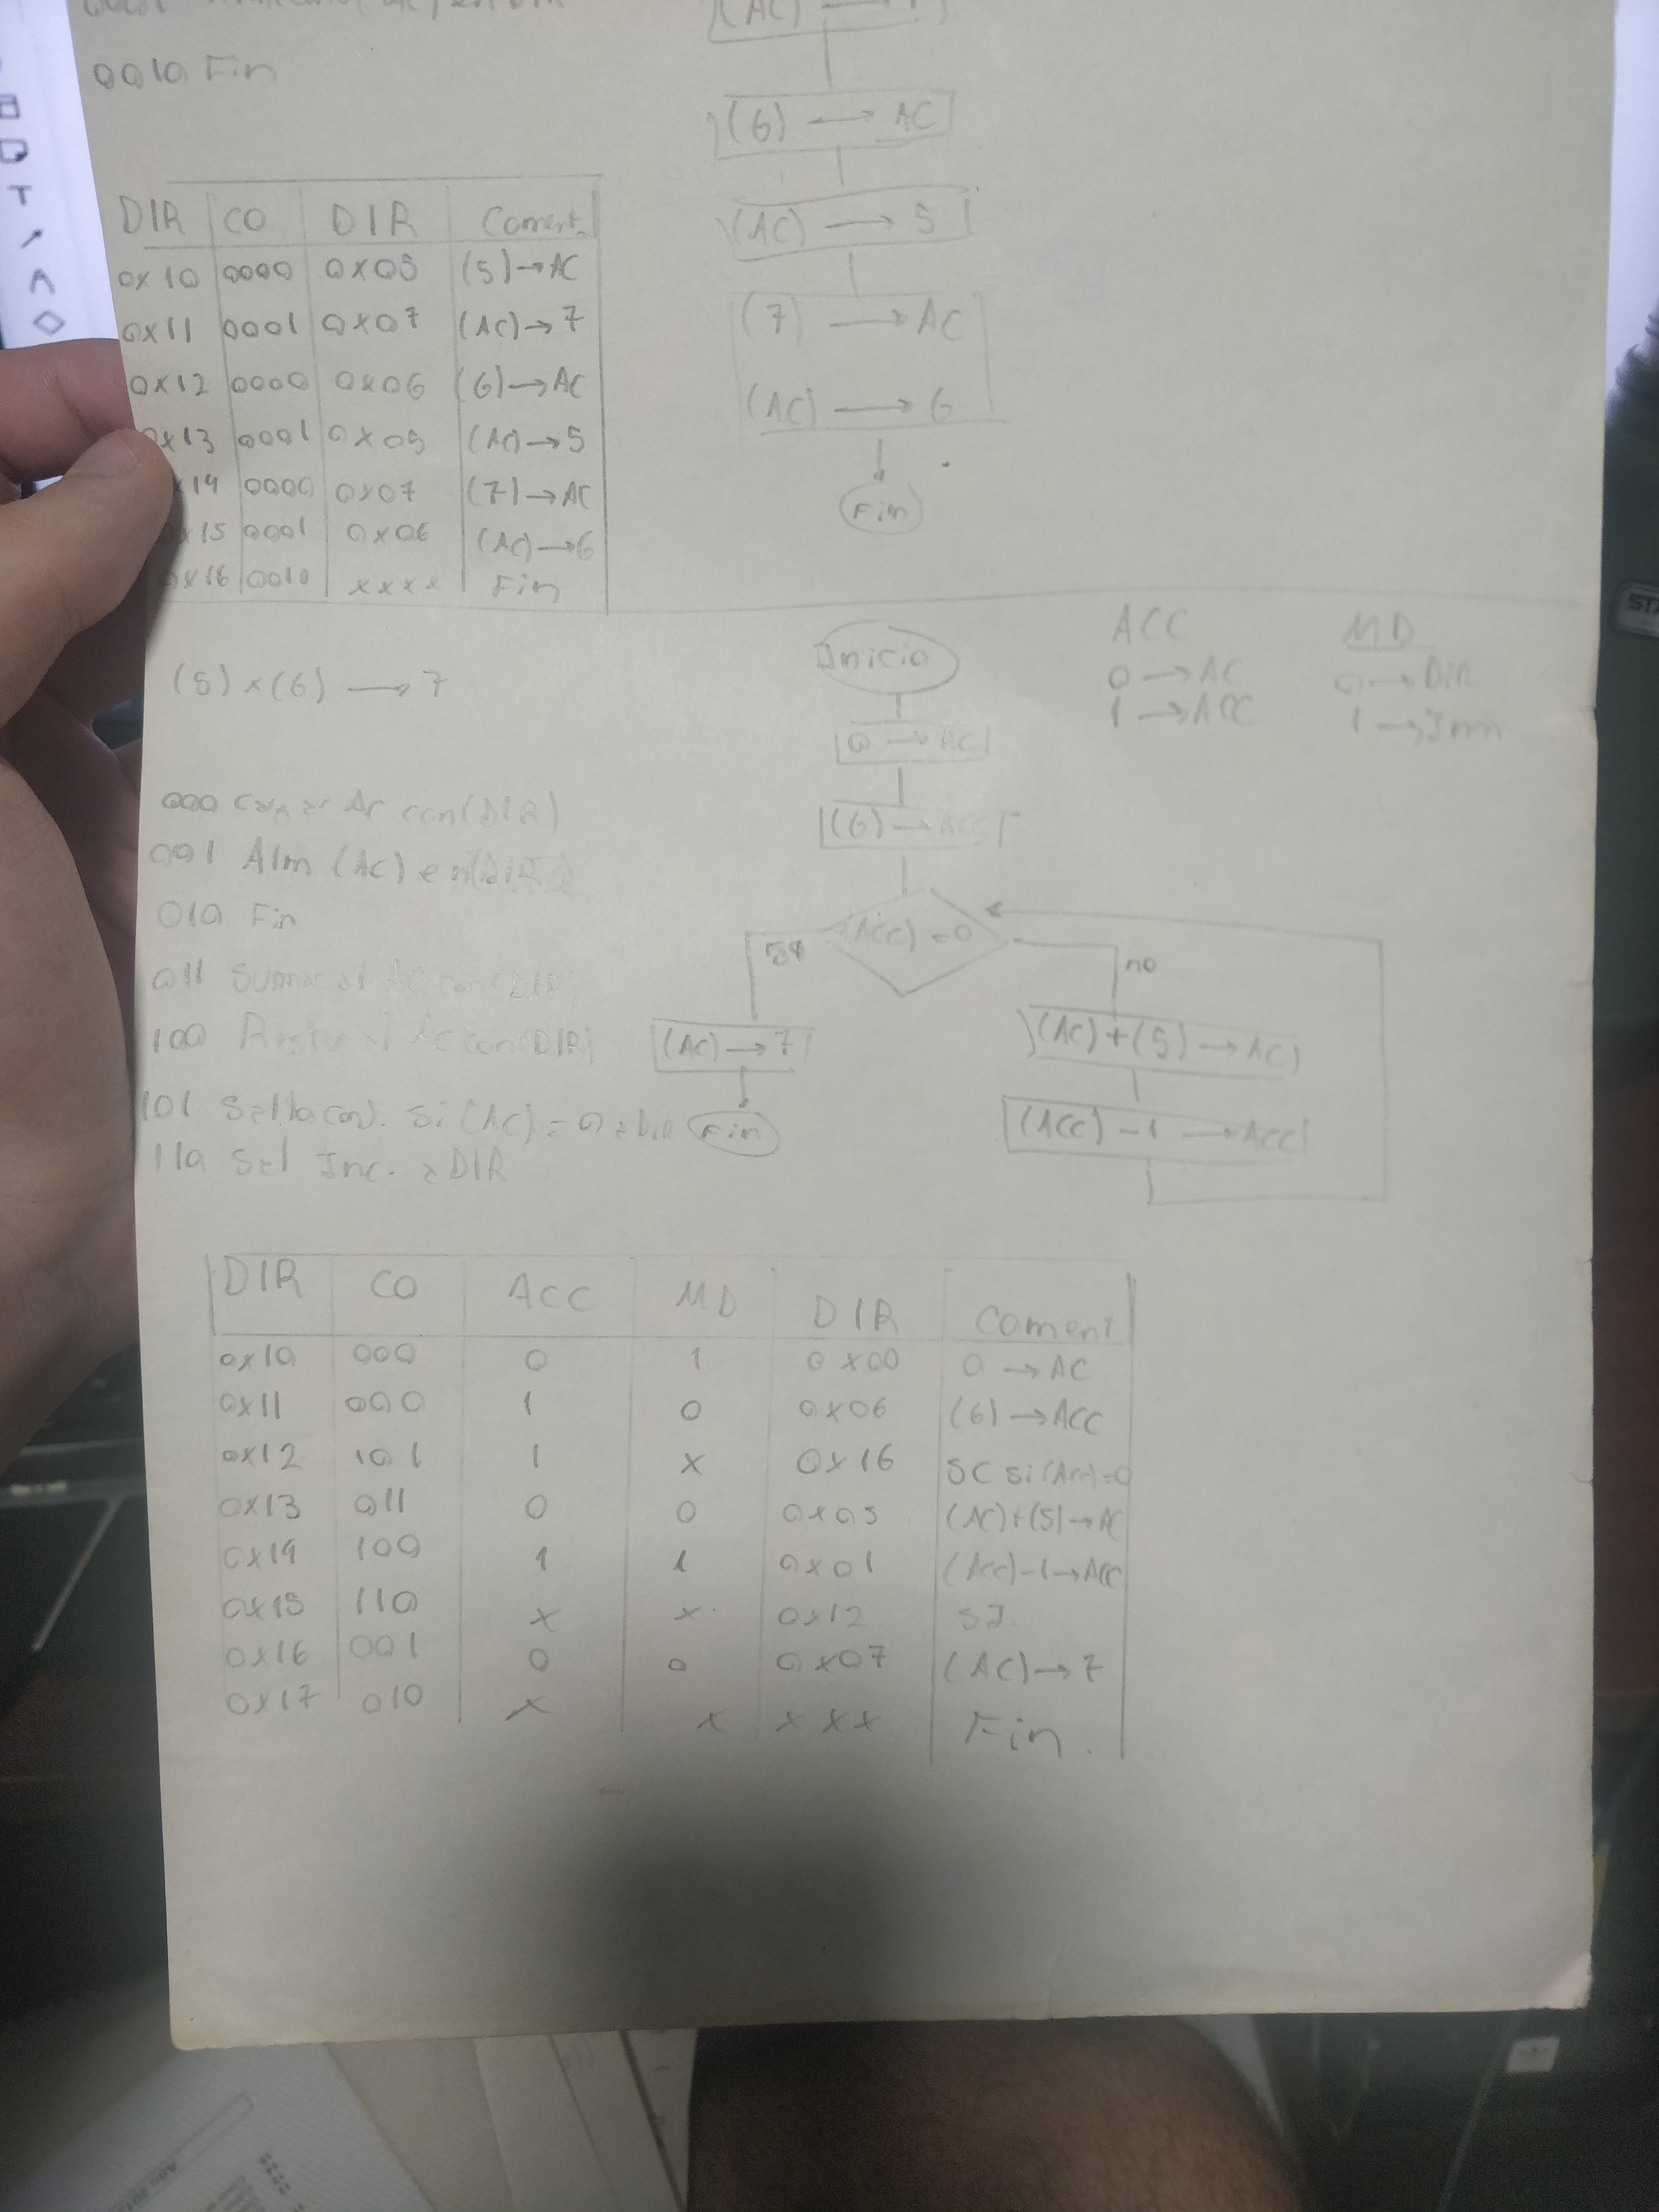 0010 Fin
(6) → AC
(AC) → 5
(7) → AC
(AC) → 6
Fin
DIR CO DIR Coment.
0x10 0000 0x05 (5)→AC
0x11 0001 0x07 (AC)→7
0x12 0000 0x06 (6)→AC
0x13 0001 0x05 (AC)→5
x14 0000 0x07 (7)→AC
0x15 0001 0x06 (AC)→6
0x16 0010 xxxx Fin
(5)x(6) → 7
000 Cargar Ac con(DIR)
001 Alm (AC) en(DIR)
010 Fin
011 Sumar al AC con(DIR)
100 Restar al Ac con(DIR)
101 con. si (AC)=0 a DIR
110 Sal Inc. a DIR
Inicio
0 → AC
(6) → ACC
(Acc)=0
no
(AC) → 7
Fin
(AC)+(5) → AC
(ACC)-1 → ACC
ACC
0 → AC
1 → ACC
MD
0 → DIR
1 → Inm
DIR CO ACC MD DIR Coment
0x10 000 0 1 0x00 0 → AC
0x11 000 1 0 0x06 (6) → ACC
0x12 101 1 x 0x16 SC si(Acc)=0
0x13 011 0 0 0x05 (AC)+(5)→AC
0x14 100 1 1 0x01 (Acc)-1→ACC
0x15 110 x x 0x12 SI.
0x16 001 0 0 0x07 (AC)→7
0x17 010 x x xxx Fin.